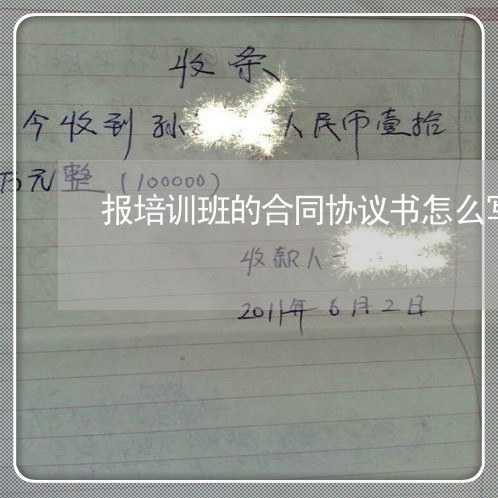 收条
今收到孙 人民币壹拾
万元整（100000）
报培训班的合同协议书怎么写
收款人
2011年6月2日